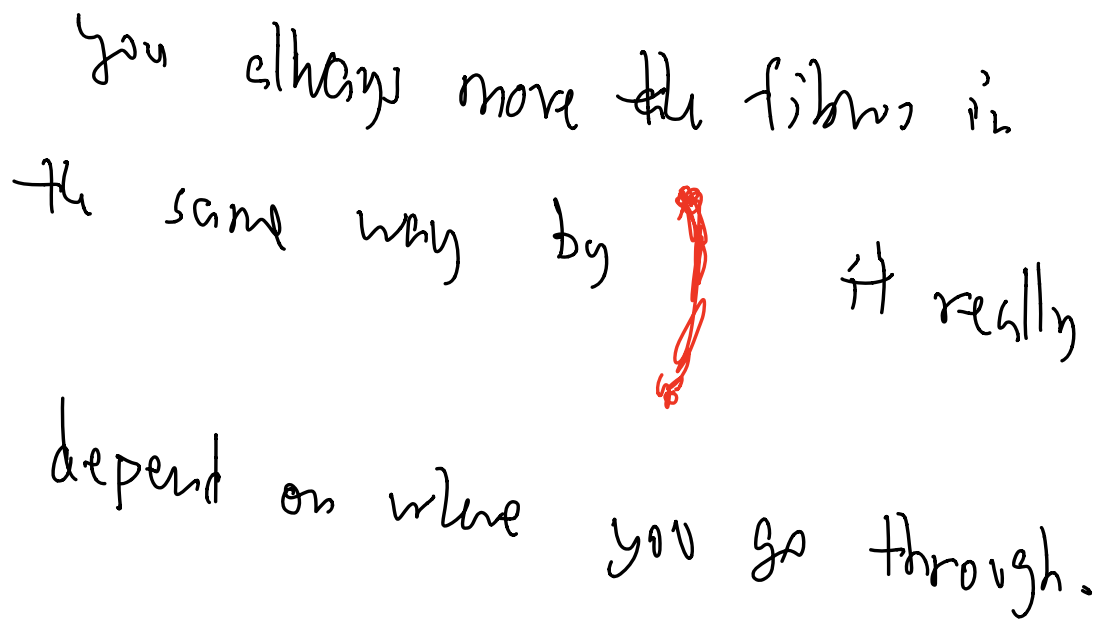 you always move the fibres in
the same way by it really
depend on where
you go through.